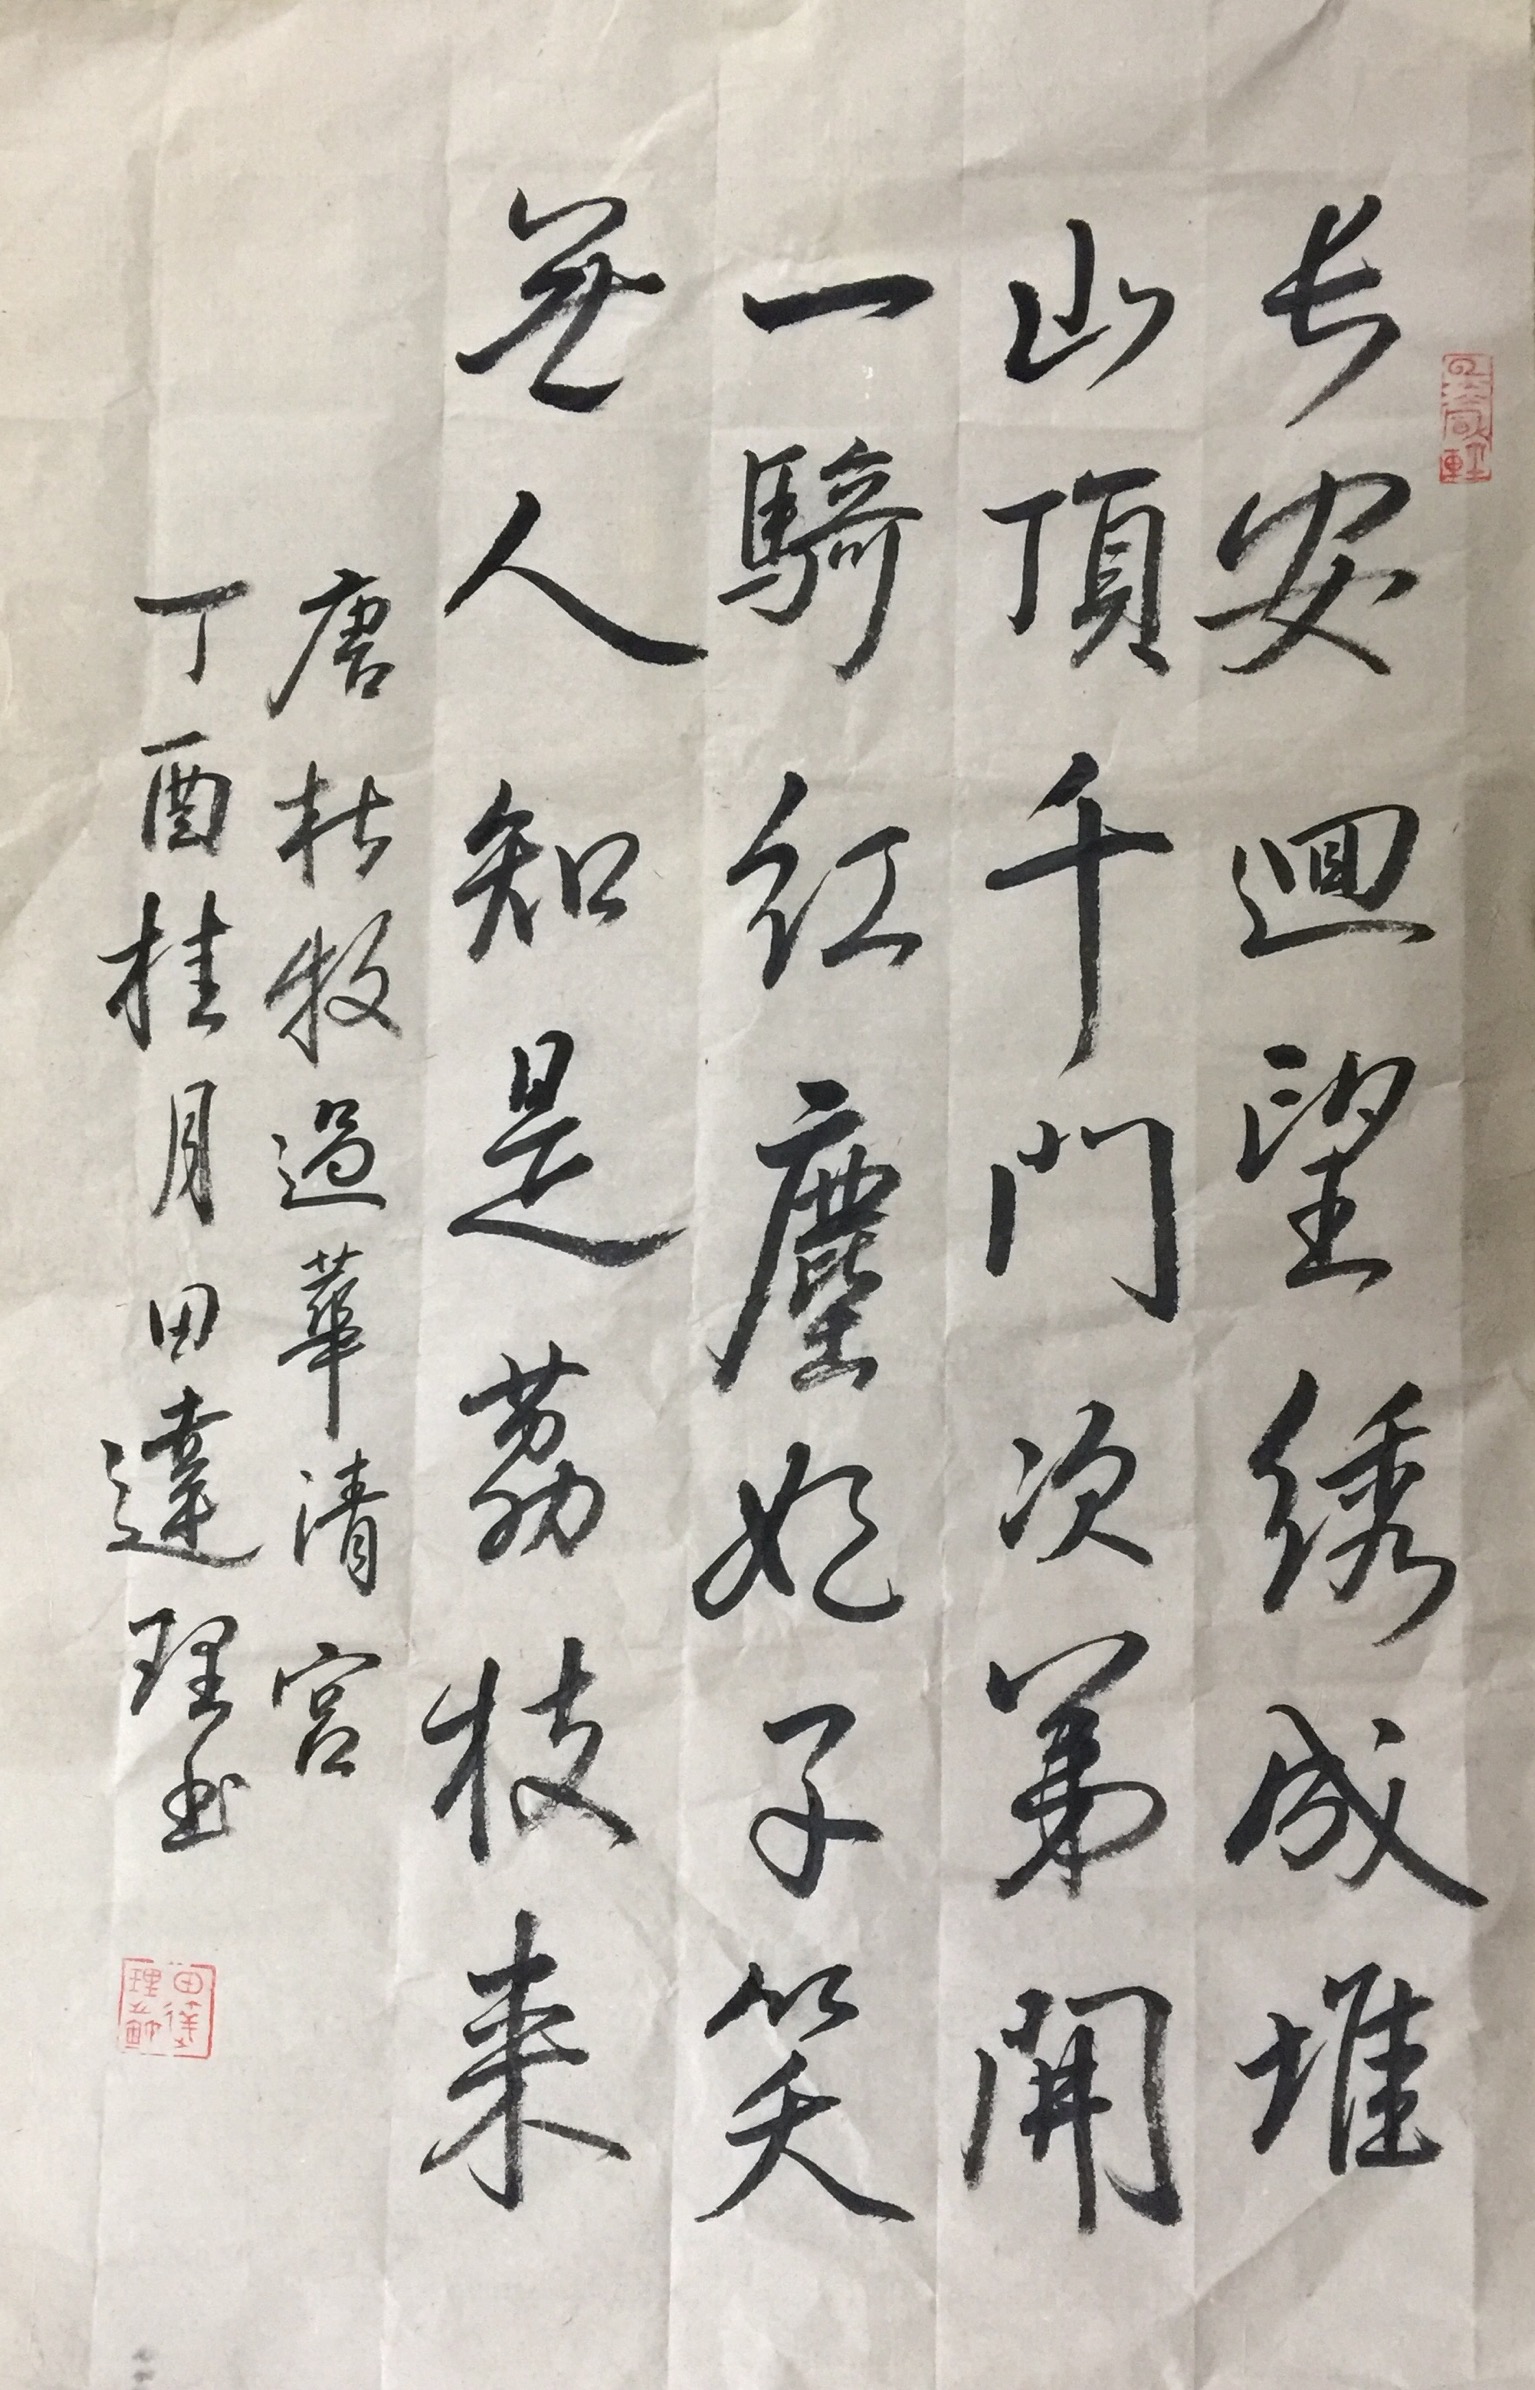 长安迴望绣成堆
山頂千門次第開
一騎红塵妃子笑
无人知是荔枝来
唐杜牧過華清宮
丁酉桂月田達理书